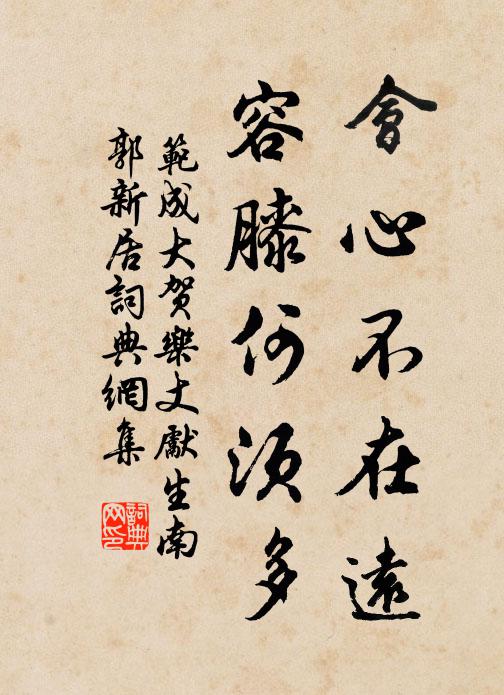 會心不在遠
容膝何須多
範成大賀樂丈獻生南
郭新居詞典網集
詞典网印